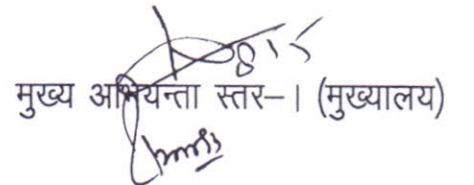 मुख्य अभियन्ता स्तर–। (मुख्यालय)